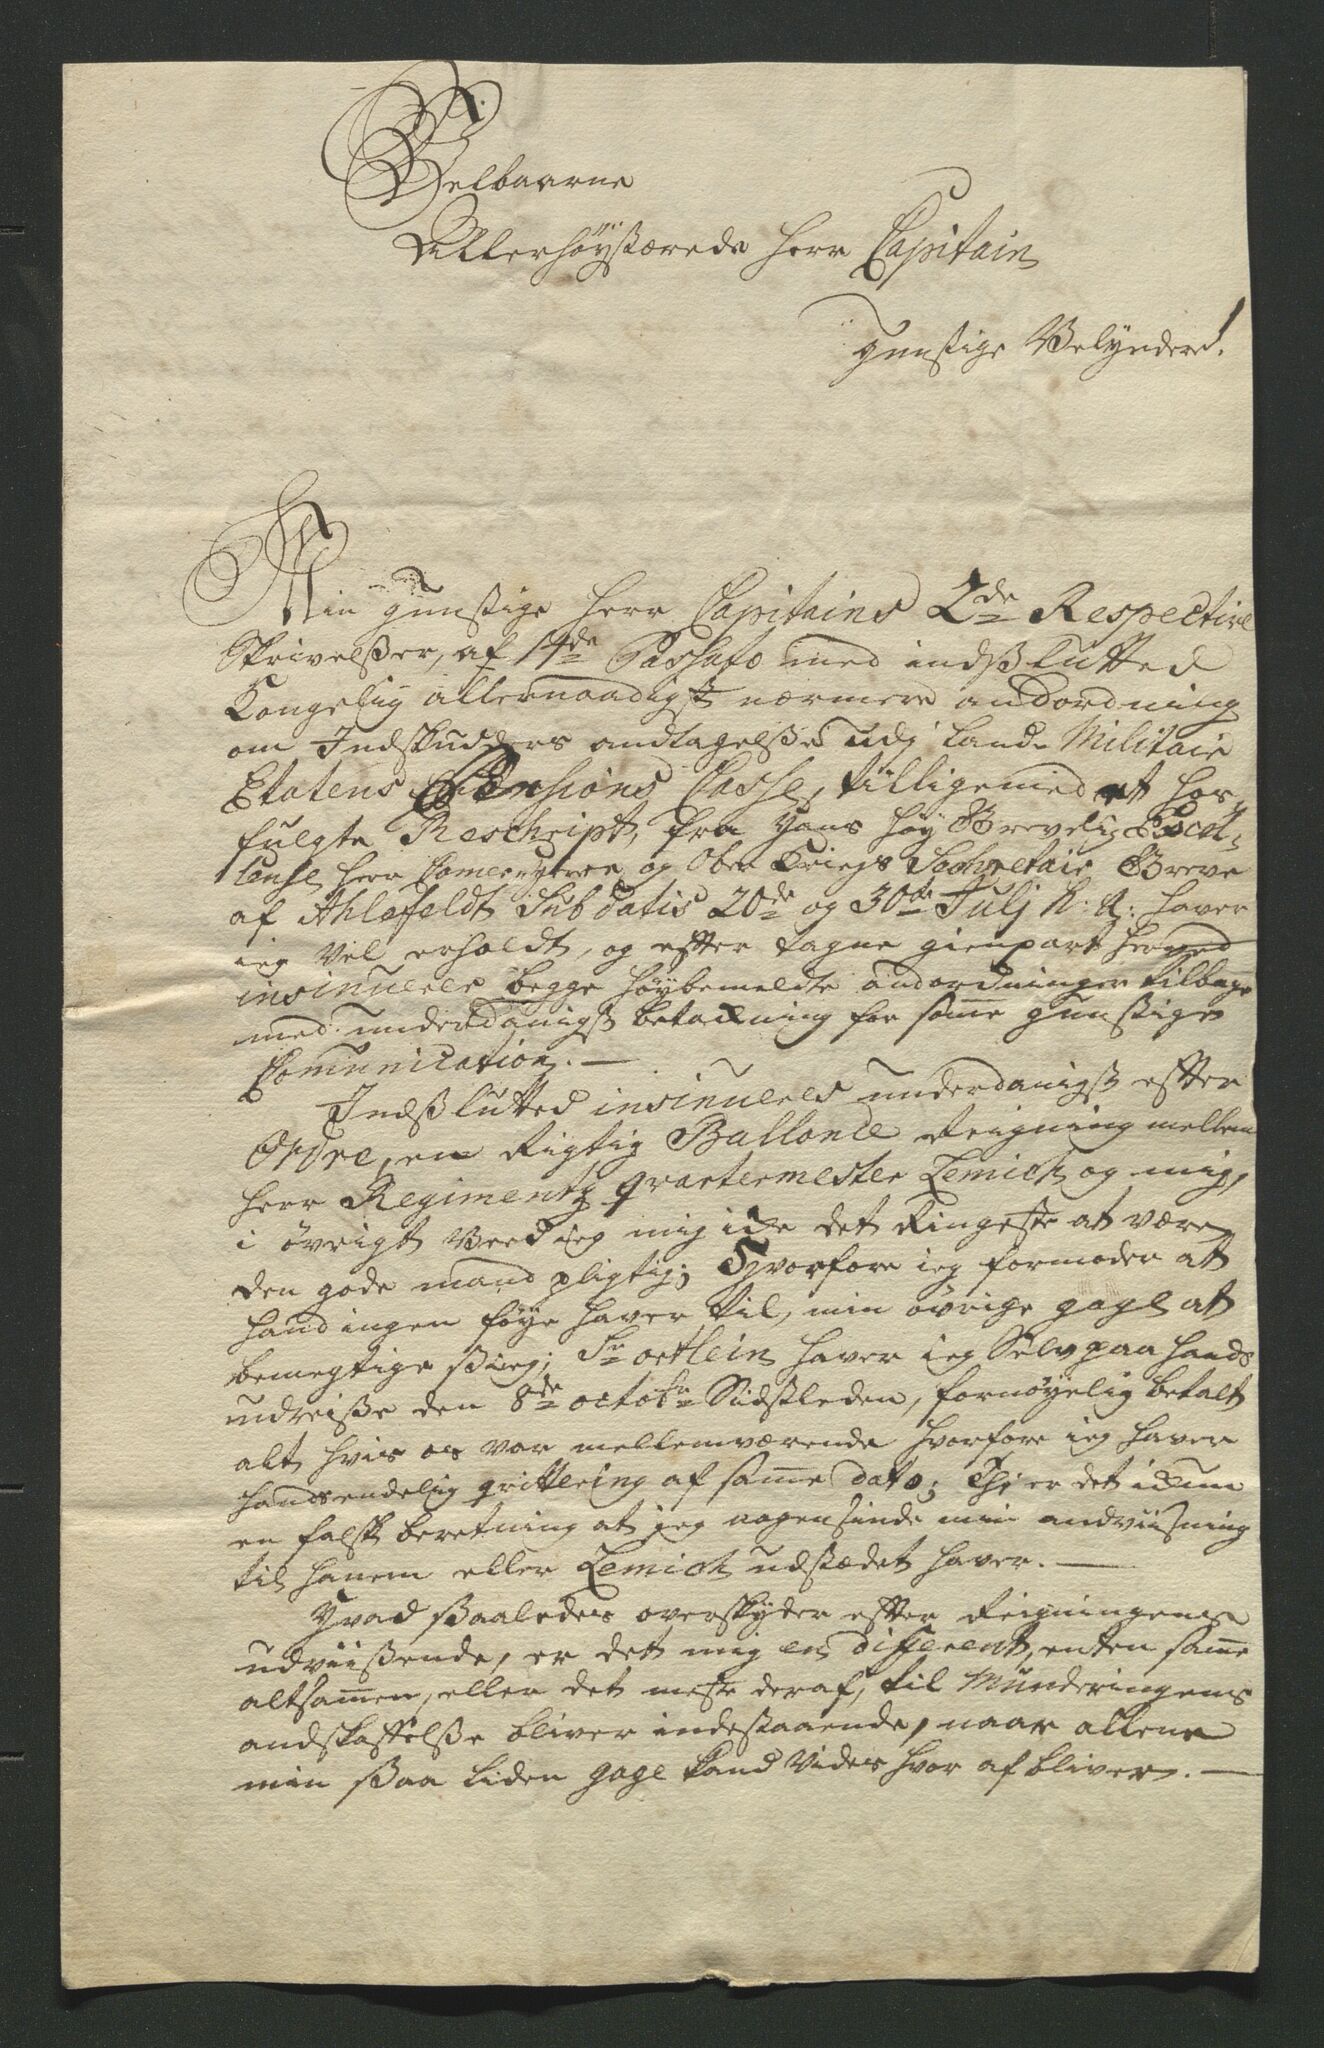 Velbaarne
Allerhøystærede Herr Capitain
gunstige Velynderd.
Min gunstige Herr Capitains 2de Respective
Skrivelsser, af 14de Passato med indslutted
Kongelig allernaadigst nærmere andordning
om Indskudders andtagelsse udj Land Militair
Etatens Pensions Casse, tilligemed et hos¬
fulgte Reschript, fra Hans Høy Grevelig Excel¬
lense, Herr Camerherre og Ober Kriegs Secretair Greve
af Ahlefeldt Sub datis 20de og 30de Julj h: a: haver
ieg vel erholdt, og effter tagne gienpart herved
insinuerer begge høybemeldte andordninger tilbage
med underdanigst betakning for samme gunstige
Comunication. —
Indslutted insinueres underdanigst efter
Ordre, en Rigtig Ballance Reigning mellem
Herr Regimentz qvartermester Lemich og mig,
i øvrigt Veed ieg mig icke det Ringeste at være
den gode mand pligtig; Hvorfore ieg formoder at
hand ingen føye haver til, min øvrige gage at
bemegtige ssieg; Sr oetlein haver ieg Selv paa hands
udreisse den 8de octobr Sidstleden, fornøyelig betalt
alt hvis os var mellemværende hvorfore ieg haver
hands endelig qvittering af samme dato; Thj er det ickun
en falsk beretning at jeg nogensinde min andviisning
til hanem eller Lemich udstædet haver. —
Hvad ssaaledes overskyder effter Reigningens
udviissende, er det mig en different, enten samme
altsammen, eller det meste deraf, til Munderingens
andskaffelsse bliver indestaaende, naar allene
min ssaa liden gage kand vides hvor af bliver. —